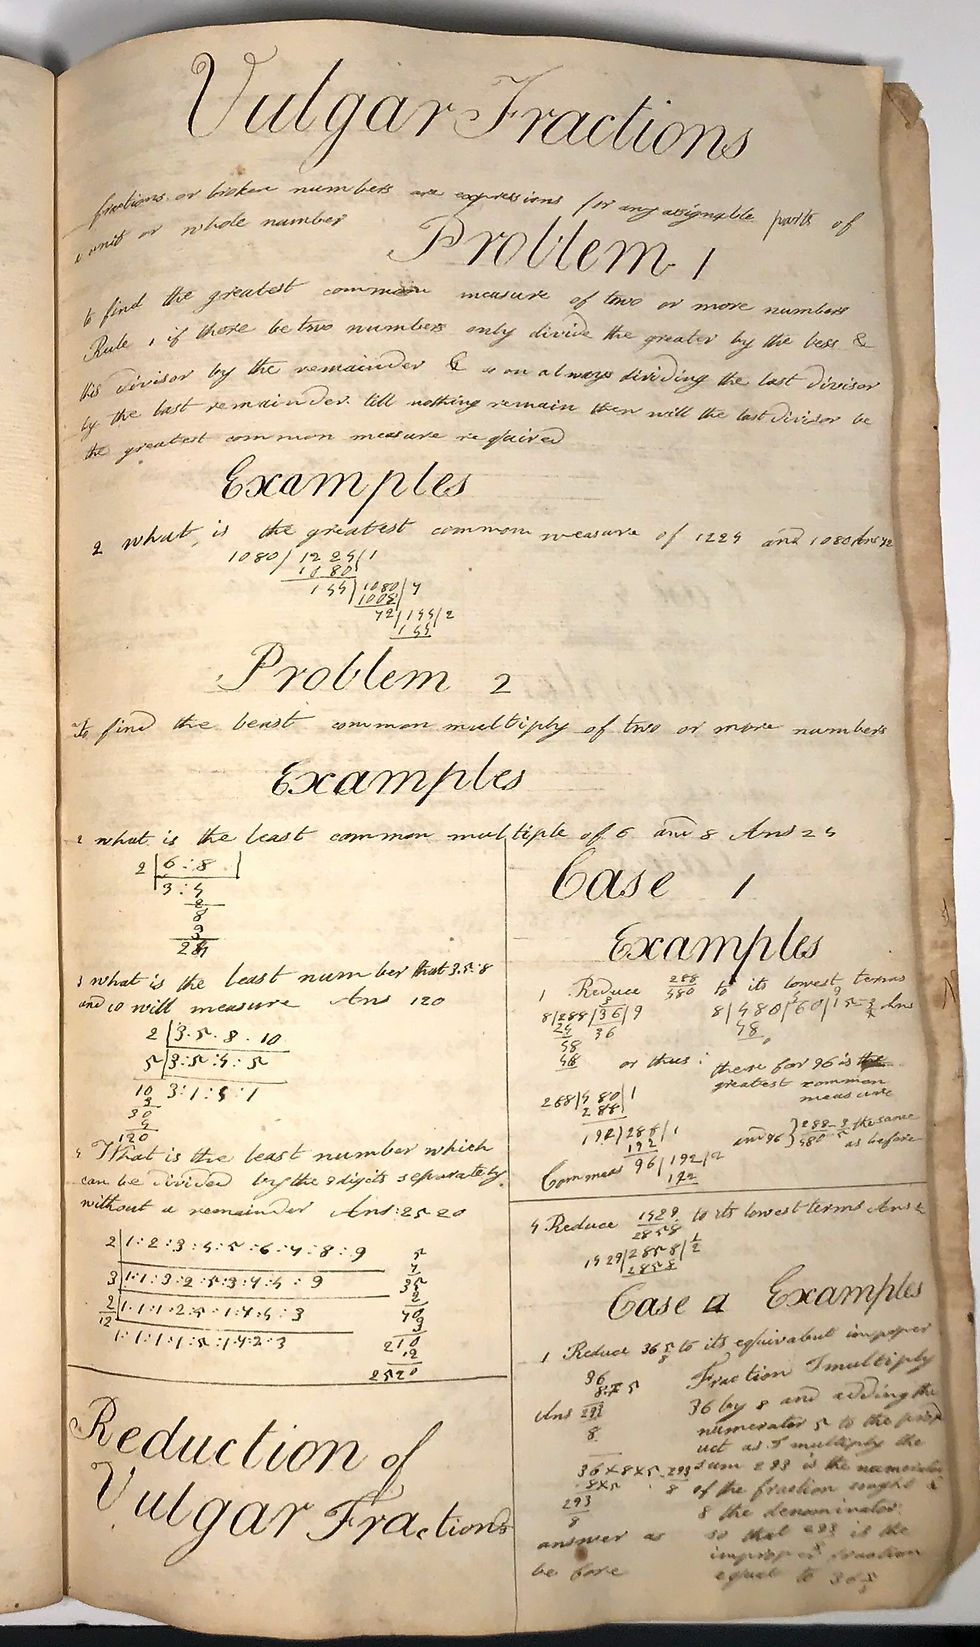 Vulgar Fractions
fractions or broken numbers are expressions for any assignable parts of
a unit or whole number
Problem 1
to find the greatest common measure of two or more numbers
Rule 1 if there be two numbers only divide the greater by the less &
this divisor by the remainder & so on always dividing the last divisor
by the last remainder till nothing remain then will the last divisor be
the greatest common measure required
Examples
2 what is the greatest common measure of 1224 and 1080 Ans 72
1080/1224/1
1080
144/1080/7
1008
72/144/2
144
Problem 2
To find the least common multiply of two or more numbers
Examples
1 what is the least common multiple of 6 and 8 Ans 24
2 6:8
3:4
8
3
24
3 what is the least number that 3.5.8
and 10 will measure Ans 120
2 3.5.8.10
5 3:5:4:5
10 3:1:4:1
3
30
4
120
4 What is the least number which
can be divided by the 9 digits separately
without a remainder Ans:2520
2 1:2:3:4:5:6:7:8:9
3 1:1:3:2:5:3:7:4:9
2 1:1:1:2:5:1:7:4:3
12 1:1:1:1:5:1:7:2:3
5
7
35
2
70
3
210
12
2520
Reduction of
Vulgar Fractions
Case 1
Examples
1 Reduce 288/480 to its lowest terms
8/288/36/9
24 36
48
48
8/480/60/15 Ans
48
or thus:
there for 96 is
greatest common
measure
288/480/1
288
192/288/1
192
96/192/2
192
and 96 288/480 the same
as before
4 Reduce 1429/2858 to its lowest terms Ans
1429/2858/
2858
Case 2 Examples
1 Reduce 36 5/8 to its equivalent improper
Fraction I multiply
36 by 8 and adding the
numerator 5 to the prod
uct as I multiply the
sum 293 is the numerator
of the fraction sought &
8 the denominator
so that 293/8 is the
improper fraction
equal to 36 5/8
36
8×5
Ans 293
8
36×8×5 293
8×5 8
293
8
answer as
before